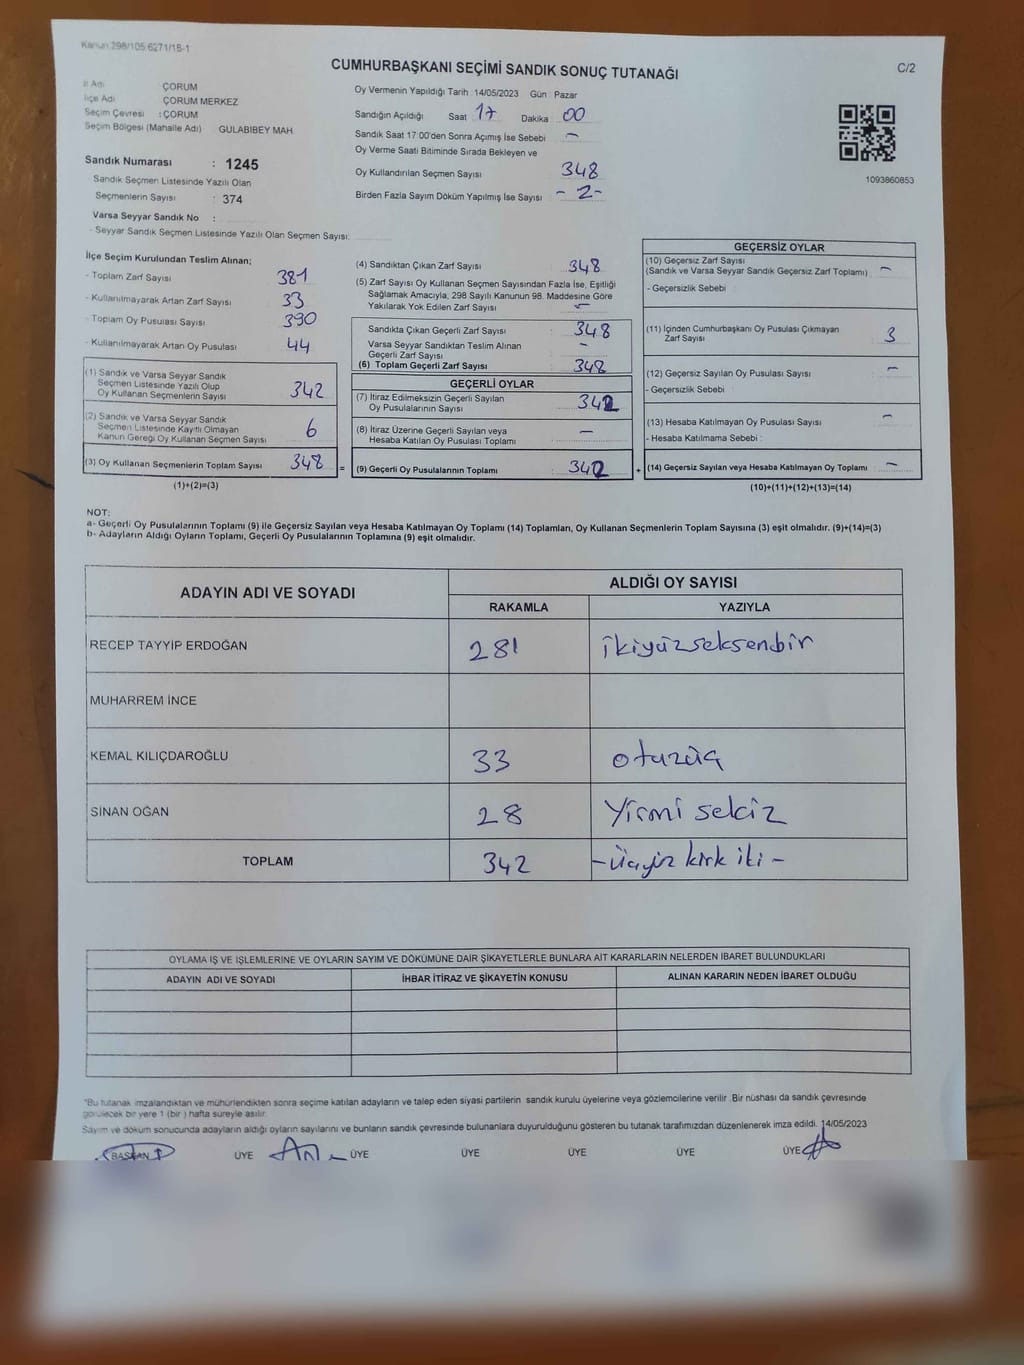 Kanun 298/105.6271/1B-1
C/2
CUMHURBAŞKANI SEÇİMİ SANDIK SONUÇ TUTANAĞI
İl Adı ÇORUM
İlçe Adı ÇORUM MERKEZ
Seçim Çevresi : ÇORUM
Seçim Bölgesi (Mahalle Adı) GULABIBEY MAH.
Sandık Numarası : 1245
- Sandık Seçmen Listesinde Yazılı Olan
Seçmenlerin Sayısı : 374
Varsa Seyyar Sandık No :
- Seyyar Sandık Seçmen Listesinde Yazılı Olan Seçmen Sayısı:
Oy Vermenin Yapıldığı Tarih : 14/05/2023 Gün : Pazar
Sandığın Açıldığı Saat 17 Dakika 00
Sandık Saat 17:00'den Sonra Açımış İse Sebebi -
Oy Verme Saati Bitiminde Sırada Bekleyen ve
Oy Kullandırılan Seçmen Sayısı 348
Birden Fazla Sayım Döküm Yapılmış İse Sayısı - 2 -
1093860853
İlçe Seçim Kurulundan Teslim Alınan;
- Toplam Zarf Sayısı 381
- Kullanılmayarak Artan Zarf Sayısı 33
- Toplam Oy Pusulası Sayısı 390
- Kullanılmayarak Artan Oy Pusulası 44
(1) Sandık ve Varsa Seyyar Sandık
Seçmen Listesinde Yazılı Olup
Oy Kullanan Seçmenlerin Sayısı 342
(2) Sandık ve Varsa Seyyar Sandık
Seçmen Listesinde Kayıtlı Olmayan
Kanun Gereği Oy Kullanan Seçmen Sayısı 6
(3) Oy Kullanan Seçmenlerin Toplam Sayısı 348 =
(1)+(2)=(3)
(4) Sandıktan Çıkan Zarf Sayısı 348
(5) Zarf Sayısı Oy Kullanan Seçmen Sayısından Fazla İse, Eşitliği
Sağlamak Amacıyla, 298 Sayılı Kanunun 98. Maddesine Göre
Yakılarak Yok Edilen Zarf Sayısı -
Sandıkta Çıkan Geçerli Zarf Sayısı : 348
Varsa Seyyar Sandıktan Teslim Alınan
Geçerli Zarf Sayısı -
(6) Toplam Geçerli Zarf Sayısı 348
GEÇERLİ OYLAR
(7) İtiraz Edilmeksizin Geçerli Sayılan
Oy Pusulalarının Sayısı 342
(8) İtiraz Üzerine Geçerli Sayılan veya
Hesaba Katılan Oy Pusulası Toplamı -
(9) Geçerli Oy Pusulalarının Toplamı : 342 +
GEÇERSİZ OYLAR
(10) Geçersiz Zarf Sayısı
(Sandık ve Varsa Seyyar Sandık Geçersiz Zarf Toplamı) -
- Geçersizlik Sebebi :
(11) İçinden Cumhurbaşkanı Oy Pusulası Çıkmayan
Zarf Sayısı 3
(12) Geçersiz Sayılan Oy Pusulası Sayısı -
- Geçersizlik Sebebi :
(13) Hesaba Katılmayan Oy Pusulası Sayısı -
- Hesaba Katılmama Sebebi :
(14) Geçersiz Sayılan veya Hesaba Katılmayan Oy Toplamı : -
(10)+(11)+(12)+(13)=(14)
NOT:
a- Geçerli Oy Pusulalarının Toplamı (9) ile Geçersiz Sayılan veya Hesaba Katılmayan Oy Toplamı (14) Toplamları, Oy Kullanan Seçmenlerin Toplam Sayısına (3) eşit olmalıdır. (9)+(14)=(3)
b- Adayların Aldığı Oyların Toplamı, Geçerli Oy Pusulalarının Toplamına (9) eşit olmalıdır.
ADAYIN ADI VE SOYADI ALDIĞI OY SAYISI
RAKAMLA YAZIYLA
RECEP TAYYİP ERDOĞAN 281 ikiyüzseksenbir
MUHARREM İNCE
KEMAL KILIÇDAROĞLU 33 otuzüç
SİNAN OĞAN 28 Yirmi sekiz
TOPLAM 342 - Üçyüz kırk iki -
OYLAMA İŞ VE İŞLEMLERİNE VE OYLARIN SAYIM VE DÖKÜMÜNE DAİR ŞİKAYETLERLE BUNLARA AİT KARARLARIN NELERDEN İBARET BULUNDUKLARI
ADAYIN ADI VE SOYADI İHBAR İTİRAZ VE ŞİKAYETİN KONUSU ALINAN KARARIN NEDEN İBARET OLDUĞU
*Bu tutanak imzalandıktan ve mühürlendikten sonra seçime katılan adayların ve talep eden siyasi partilerin sandık kurulu üyelerine veya gözlemcilerine verilir. Bir nüshası da sandık çevresinde
görülecek bir yere 1 (bir) hafta süreyle asılır.
Sayım ve döküm sonucunda adayların aldığı oyların sayılarını ve bunların sandık çevresinde bulunanlara duyurulduğunu gösteren bu tutanak tarafımızdan düzenlenerek imza edildi. 14/05/2023
BAŞKAN ÜYE ÜYE ÜYE ÜYE ÜYE ÜYE